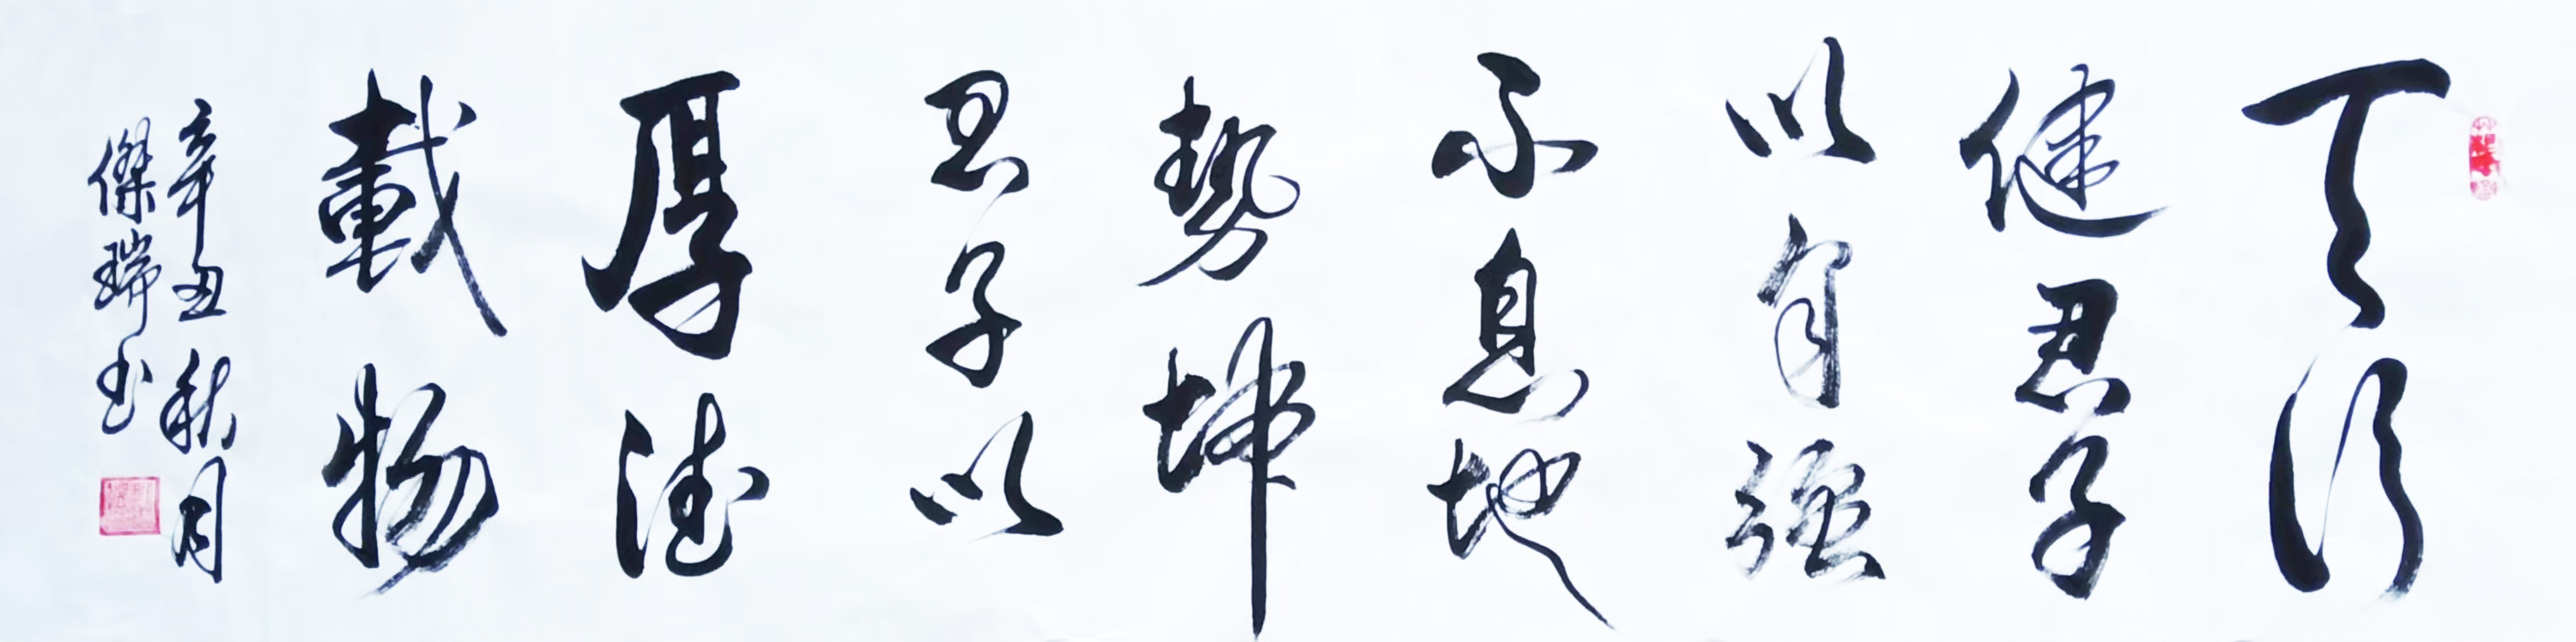 天行
健君子
以自強
不息地
勢坤
君子以
厚德
載物
辛丑秋月
傑瑞书